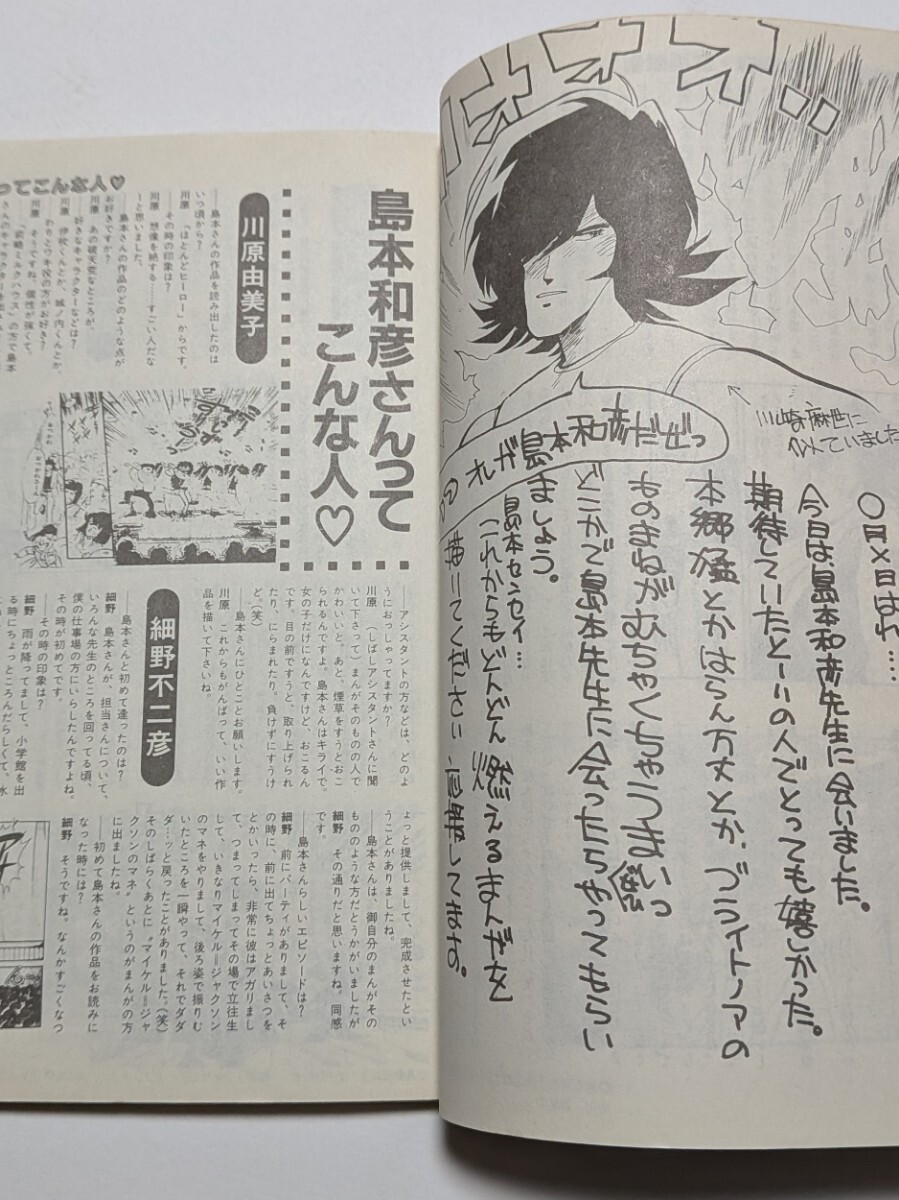 オオオオ‥
川崎麻世に
似ていました
れが島本和彦だぜっ
〇月×日はれ‥‥
今日は、島本和彦先生に会いました。
期待していたとーりの人でとっても嬉しかった。
本郷猛とかはらん万丈とか、ブライトノアの
ものまねがむちゃくちゃうまいっ
どこかで島本先生に会ったらやってもらい
ましょう。
島本センセイ…
これからもどんどん燃えるまんがを
描いてください
島本和彦さんって
こんな人♡
ってこんな人♡
川原由美子
――島本さんの作品を読み出したのは
いつ頃から？
川原 「ほとんどヒーロー」からです。
――その時の印象は？
川原 想像を絶する……すごい人だな
ーと思いました。
――島本さんの作品のどのような点が
お好きですか？
川原 あの破天荒なところが。
――好きなキャラクターなどは？
川原 伊吹くんとか、城ノ内くんとか。
――わりとワキ役の方がお好き？
川原 そうですね。個性が強くて。
――「前略ミルクハウス」の方で島本
――アシスタントの方などは、どのよ
うにおっしゃってますか？
川原 （しばしアシスタントさんに聞
いて下さって）まんがそのものの人で
かわいいと。あと、煙草をすうとおこ
られるんですよ。島本さんはキライで。
女の子だけになんですけど、おこるん
です。目の前ですうと、取り上げられ
たり、にらまれたり。負けずにすうけ
ど。（笑）
――島本さんにひとことお願いします。
川原 これからもがんばって、いい作
品を描いて下さいね。
細野不二彦
――島本さんと初めて逢ったのは？
細野 島本さんが、担当さんについて、
いろんな先生のところを回ってる頃、
僕の仕事場の方にいらしたんですよね。
その時が初めてです。
――その時の印象は？
細野 雨が降ってまして、小学館を出
る時にちょっところんだらしくて、水
ょっと提供しまして、完成させたとい
うことがありました。
――島本さんは、御自分のまんがその
もののような方だとうかがいましたが
細野 その通りだと思いますね。同感
です。
――島本さんらしいエピソードは？
細野 前にパーティがありまして、そ
の時に、前に出てちょっとあいさつを
とかいったら、非常に彼はアガりまし
て、つまってしまってその場で立往生
して、いきなりマイケル＝ジャクソン
のマネをやりまして、後ろ姿で振りむ
いたところを一瞬やって、それでダダ
ダ…ッと戻ったことがありました。（笑）
そのしばらくあとに“マイケル＝ジャ
クソンのマネ”というのがまんがの方
に出ましたね。
――初めて島本さんの作品をお読みに
なった時には？
細野 そうですね。なんかすごくなつ